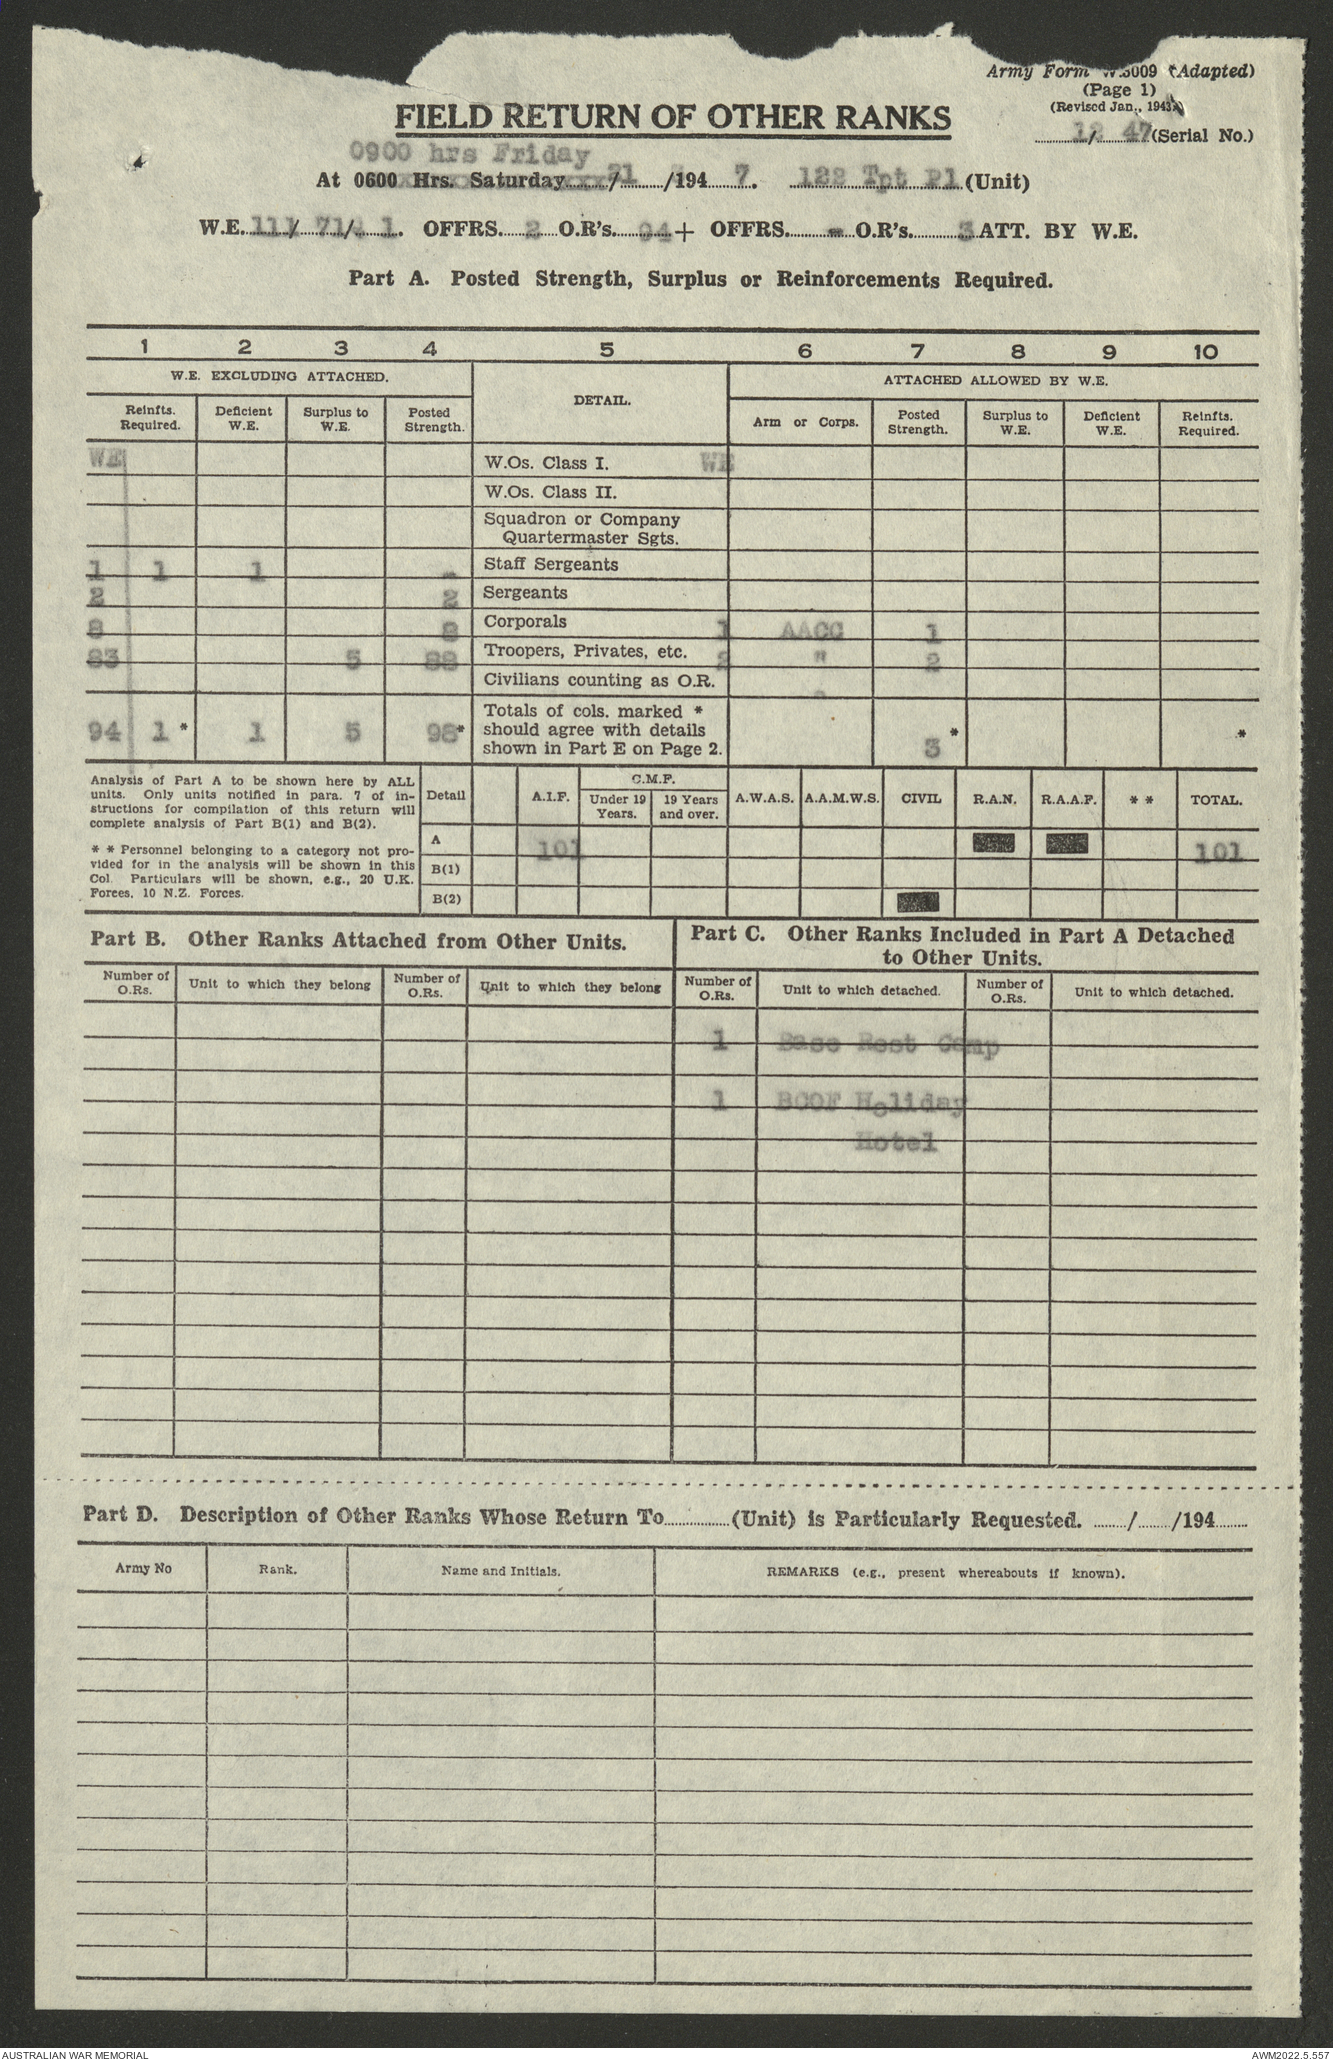 Army Form W.3009 (Adapted)
(Page 1)
(Revised Jan., 1943.)
12/ 47 (Serial No.)
FIELD RETURN OF OTHER RANKS
0900 hrs Friday
At 0600 Hrs. Saturday 21 / /194 7. 122 Tpt Pl (Unit)
W.E. 111/ 714/ 1. OFFRS. 2 O.R's. 94 + OFFRS. - O.R's. 3 ATT. BY W.E.
Part A. Posted Strength, Surplus or Reinforcements Required.
1 2 3 4 5 6 7 8 9 10
W.E. EXCLUDING ATTACHED. DETAIL. ATTACHED ALLOWED BY W.E.
Reinfts. Required. Deficient W.E. Surplus to W.E. Posted Strength. Arm or Corps. Posted Strength. Surplus to W.E. Deficient W.E. Reinfts. Required.
WE W.Os. Class I. WE
W.Os. Class II.
Squadron or Company
Quartermaster Sgts.
1 1 1 - Staff Sergeants
2 2 Sergeants
8 8 Corporals 1 AACC 1
83 5 88 Troopers, Privates, etc. 2 " 2
Civilians counting as O.R.
Totals of cols. marked *
should agree with details
shown in Part E on Page 2.
94 1 * 1 5 98* 3 * *
Analysis of Part A to be shown here by ALL
units. Only units notified in para. 7 of in-
structions for compilation of this return will
complete analysis of Part B(1) and B(2).
* * Personnel belonging to a category not pro-
vided for in the analysis will be shown in this
Col. Particulars will be shown, e.g., 20 U.K.
Forces, 10 N.Z. Forces.
Detail A.I.F. C.M.F. Under 19 Years. 19 Years and over. A.W.A.S. A.A.M.W.S. CIVIL R.A.N. R.A.A.F. * * TOTAL.
A 101 101
B(1)
B(2)
Part B. Other Ranks Attached from Other Units.
Part C. Other Ranks Included in Part A Detached
to Other Units.
Number of O.Rs. Unit to which they belong Number of O.Rs. Unit to which they belong Number of O.Rs. Unit to which detached. Number of O.Rs. Unit to which detached.
1 Base Rest Camp
1 BCOF Holiday
Hotel
Part D. Description of Other Ranks Whose Return To (Unit) is Particularly Requested. / /194
Army No Rank. Name and Initials. REMARKS (e.g., present whereabouts if known).
AUSTRALIAN WAR MEMORIAL AWM2022.5.557